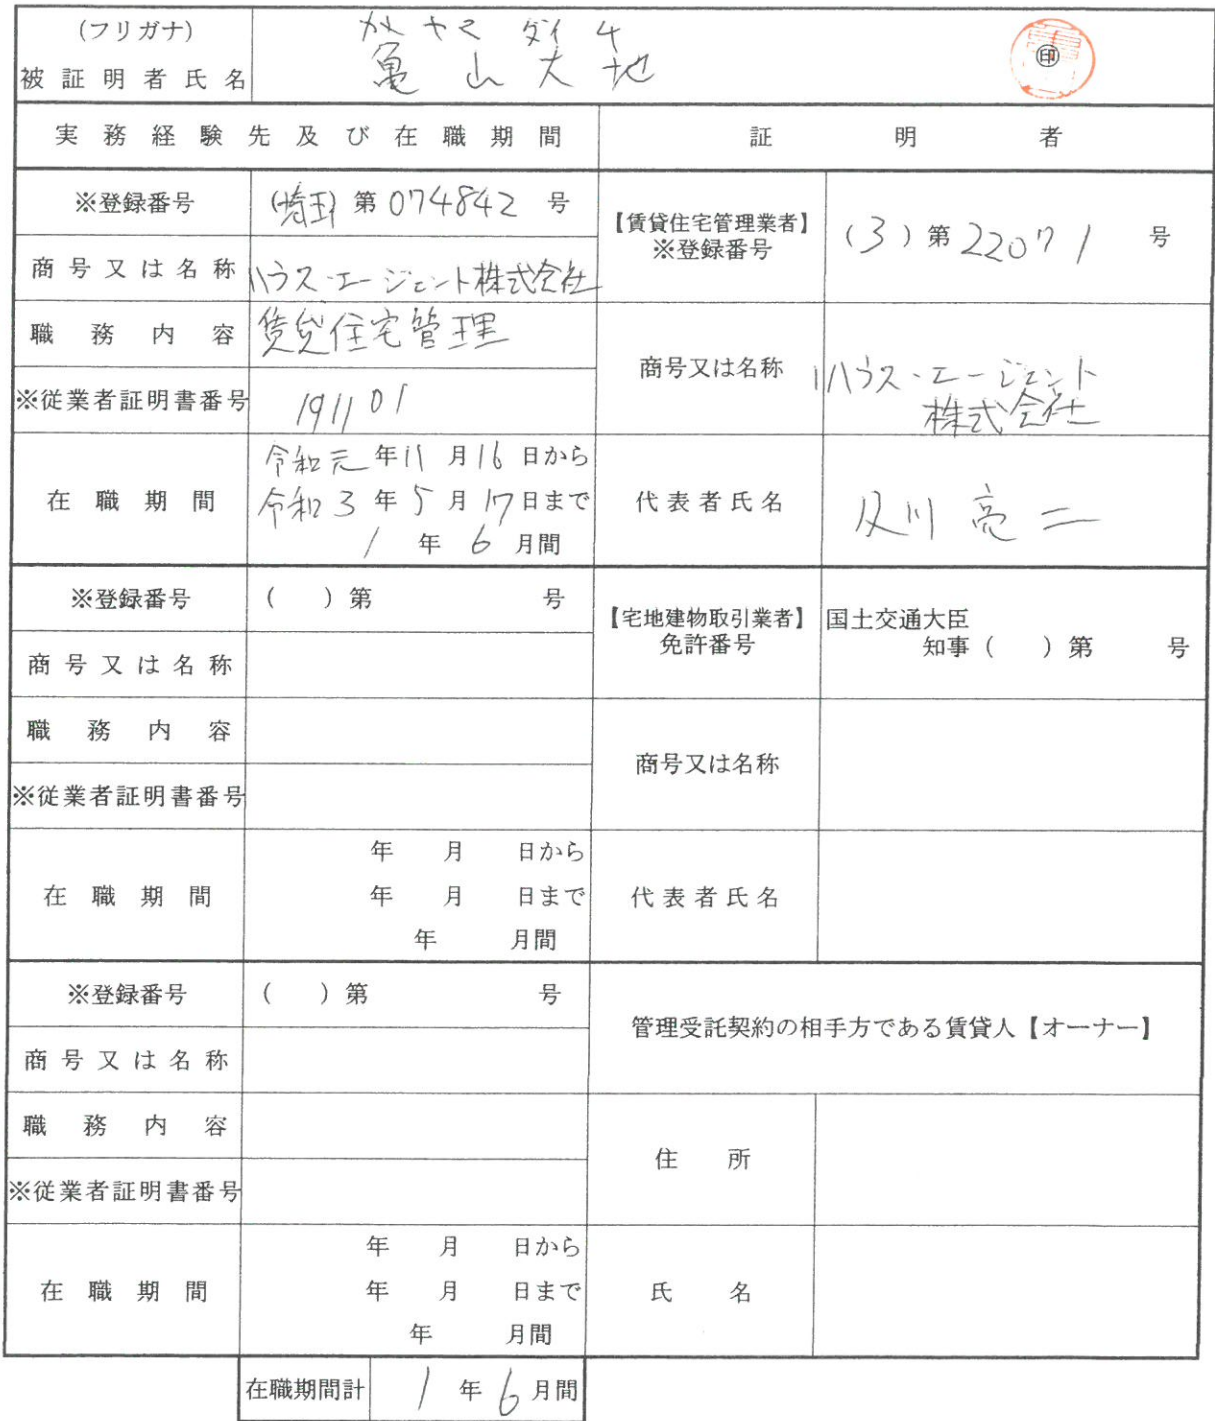 (フリガナ) カメ ヤマ ダイ チ
被証明者氏名 亀山大地 ㊞
実務経験先及び在職期間 証明者
※登録番号 (埼玉) 第 074842 号
【賃貸住宅管理業者】
※登録番号 (3) 第 22071 号
商号又は名称 ハウス・エージェント株式会社
職務内容 賃貸住宅管理
商号又は名称 ハウス・エージェント
株式会社
※従業者証明書番号 191101
在職期間 令和元年11月16日から
令和3年5月17日まで
1年6月間
代表者氏名 及川亮二
※登録番号 ( ) 第 号
【宅地建物取引業者】
免許番号 国土交通大臣
知事 ( ) 第 号
商号又は名称
職務内容
商号又は名称
※従業者証明書番号
在職期間 年 月 日から
年 月 日まで
年 月間
代表者氏名
※登録番号 ( ) 第 号
管理受託契約の相手方である賃貸人【オーナー】
商号又は名称
職務内容
住所
※従業者証明書番号
在職期間 年 月 日から
年 月 日まで
年 月間
氏名
在職期間計 1年6月間